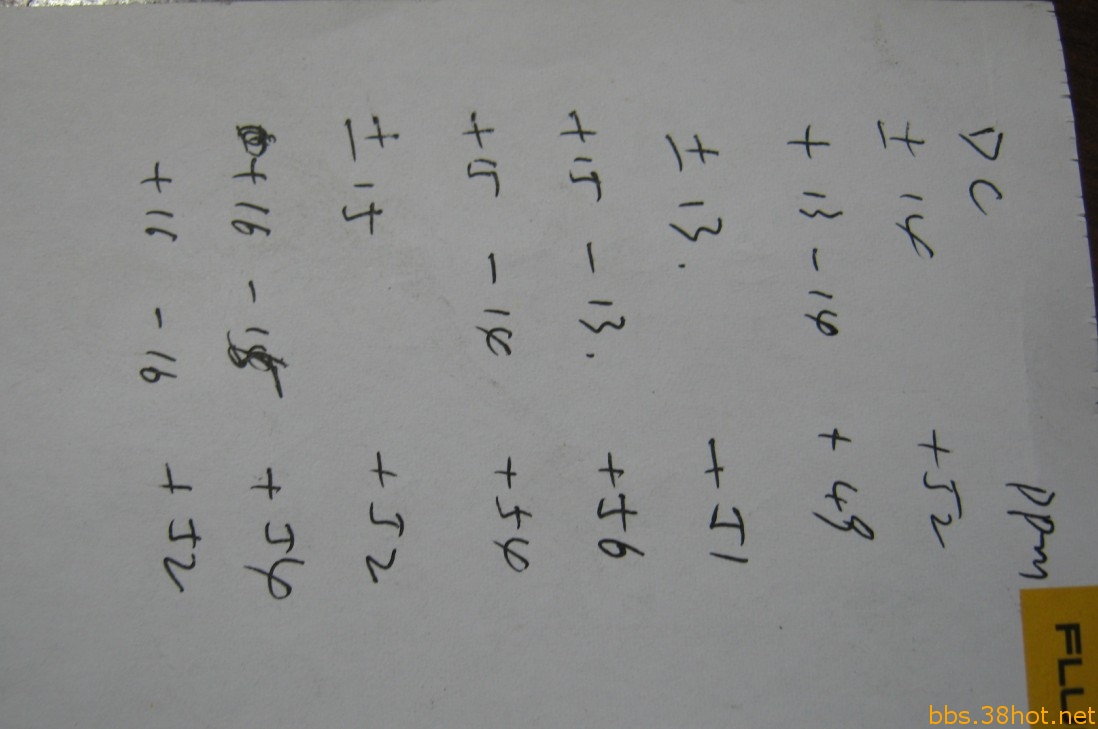 DC ppm
± 14 +52
+ 13 - 14 + 48
± 13. +51
+ 15 - 13. +56
+ 15 - 14 +54
± 15 +52
+ 16 - 15 + 54
+ 16 - 16 + 52
bbs.38hot.net